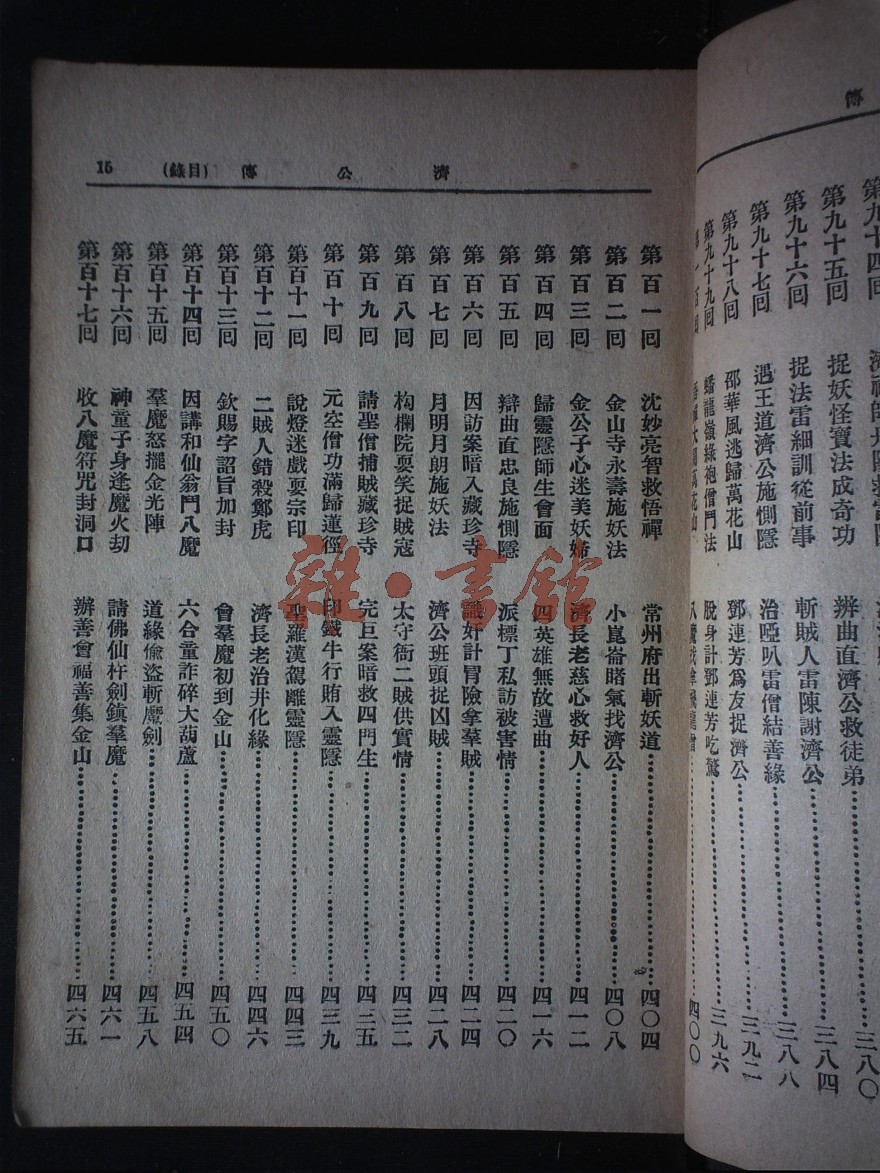 傳
第九十四回
第九十五回 捉妖怪寶法成奇功 辨曲直濟公救徒弟
第九十六回 捉法雷細訓從前事 斬賊人雷陳謝濟公……三八四
第九十七回 遇王道濟公施惻隱 治啞叭雷僧結善緣……三八八
第九十八回 邵華風逃歸萬花山 鄧連芳爲友捉濟公……三九二
第九十九回 蟠龍嶺綠袍僧鬥法 脫身計鄧連芳吃驚……三九六
四〇〇
濟公傳 (目錄) 15
第百一回 沈妙亮智救悟禪 常州府出斬妖道……四〇四
第百二回 金山寺永壽施妖法 小崑崙賭氣找濟公……四〇八
第百三回 金公子心迷美妖婦 濟長老慈心救好人……四一二
第百四回 歸靈隱師生會面 四英雄無故遭曲……四一六
第百五回 辯曲直忠良施惻隱 派標丁私訪被害情……四二〇
第百六回 因訪案暗入藏珍寺 識奸計冒險拿羣賊……四二四
第百七回 月明月朗施妖法 濟公班頭捉凶賊……四二八
第百八回 构欄院耍笑捉賊寇 太守衙二賊供實情……四三二
第百九回 請聖僧捕賊藏珍寺 完巨案暗救四門生……四三五
第百十回 元空僧功滿歸蓮徑 印鐵牛行賄入靈隱……四三九
第百十一回 說燈迷戲耍宗印 聖羅漢駕離靈隱……四四三
第百十二回 二賊人錯殺鄭虎 濟長老治井化緣……四四六
第百十三回 欽賜字詔旨加封 會羣魔初到金山……四五〇
第百十四回 因講和仙翁鬥八魔 六合童詐碎大葫蘆……四五四
第百十五回 羣魔怒擺金光陣 道緣偷盜斬魔劍……四五八
第百十六回 神童子身逢魔火劫 請佛仙杵劍鎮羣魔……四六一
第百十七回 收八魔符咒封洞口 辦善會福善集金山……四六五
雜·書館